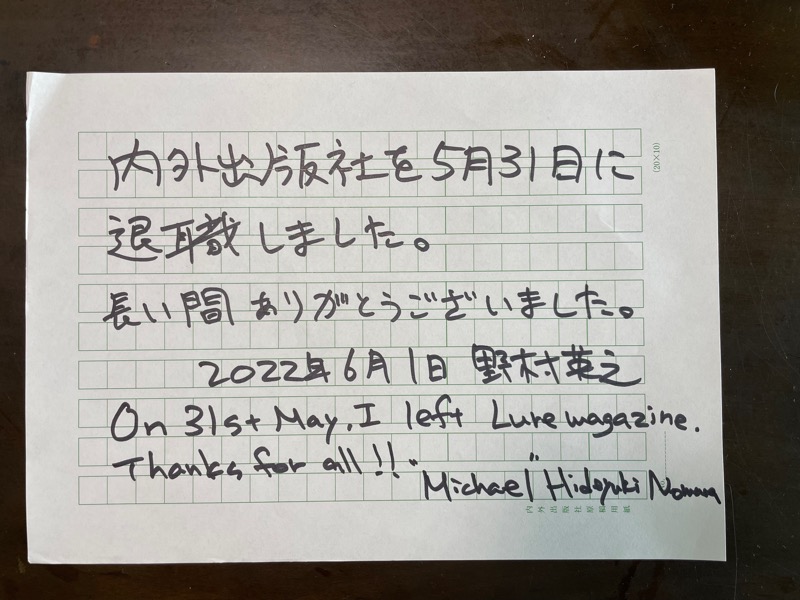 内外出版社を5月31日に
退職しました。
長い間ありがとうございました。
2022年6月1日 野村英之
On 31st May, I left Lure magazine.
Thanks for all!!
"Michael" Hideyuki Nomura
(20×10)
内外出版社原稿用紙